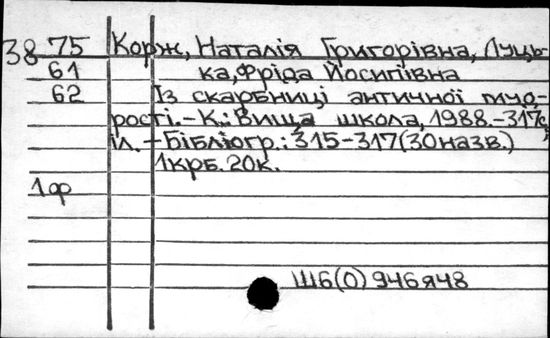 38 75 Корж, Наталія Григорівна, Луць-
61 ка, Фріда Йосипівна
62 Із скарбниці античної мудо-
рості. – К.: Вища школа, 1988. – 317с,
іл. – Бібліогр.: 315-317(30назв.)
1крб. 20к.
1ф
Ш6(0)946я48